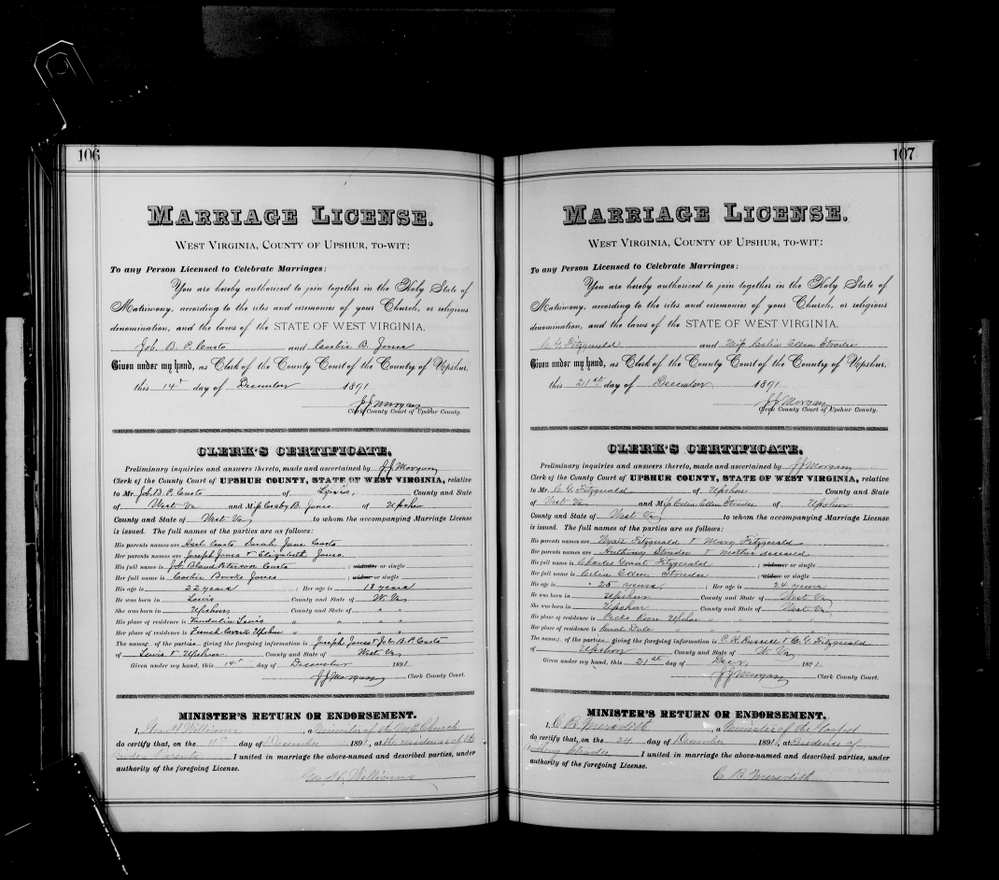 106
MARRIAGE LICENSE.
WEST VIRGINIA, COUNTY OF UPSHUR, TO-WIT:
To any Person Licensed to Celebrate Marriages:
You are hereby authorized to join together in the Holy State of
Matrimony, according to the rites and ceremonies of your Church, or religious
denomination, and the laws of the STATE OF WEST VIRGINIA,
Job. B. P. Casto and Cosbie B. Jones
Given under my hand, as Clerk of the County Court of the County of Upshur,
this 14" day of December 1891
J J Morgan
Clerk County Court of Upshur County.
CLERK'S CERTIFICATE.
Preliminary inquiries and answers thereto, made and ascertained by J J Morgan
Clerk of the County Court of UPSHUR COUNTY, STATE OF WEST VIRGINIA, relative
to Mr. Job. B. P. Casto of Lewis, County and State
of West Va and Miss Cosby B. Jones of Upshur
County and State of West Va, to whom the accompanying Marriage License
is issued. The full names of the parties are as follows:
His parents names are Casto Sarah Jane Casto
Her parents names are Joseph Jones & Elizabeth Jones
His full name is Job. Bland Peterson Casto ; widower or single
Her full name is Cosbie Jones ; widow or single
His age is 22 years ; Her age is 18 years
He was born in Lewis County and State of W. Va
She was born in Upshur County and State of " "
His place of residence is Lewis " " "
Her place of residence is French Creek Upshur " " "
The names of the parties, giving the foregoing information is Joseph Jones & Job. B. P. Casto
of Lewis & Upshur County and State of West Va
Given under my hand, this 14" day of December 1891
J J Morgan Clerk County Court.
MINISTER'S RETURN OR ENDORSEMENT.
I, Williams, a Minister of the Church
do certify that, on the day of December 1891, at the residence of the
I united in marriage the above-named and described parties, under
authority of the foregoing License.
Williams
107
MARRIAGE LICENSE.
WEST VIRGINIA, COUNTY OF UPSHUR, TO-WIT:
To any Person Licensed to Celebrate Marriages:
You are hereby authorized to join together in the Holy State of
Matrimony, according to the rites and ceremonies of your Church, or religious
denomination, and the laws of the STATE OF WEST VIRGINIA,
C. G. Fitzgerald and Miss Celia Ellen Strader
Given under my hand, as Clerk of the County Court of the County of Upshur,
this 21st day of December 1891
J J Morgan
Clerk County Court of Upshur County.
CLERK'S CERTIFICATE.
Preliminary inquiries and answers thereto, made and ascertained by J J Morgan
Clerk of the County Court of UPSHUR COUNTY, STATE OF WEST VIRGINIA, relative
to Mr. C. G. Fitzgerald of Upshur County and State
of West Va and Miss Celia Ellen Strader of Upshur
County and State of West Va to whom the accompanying Marriage License
is issued. The full names of the parties are as follows:
His parents names are Fitzgerald & Mary Fitzgerald
Her parents names are Anthony Strader & mother deceased
His full name is Charles Grant Fitzgerald ; widower or single
Her full name is Celia Ellen Strader ; widow or single
His age is " 25 years ; Her age is 24 years
He was born in Upshur County and State of West Va
She was born in Upshur County and State of West Va
His place of residence is Upshur " " "
Her place of residence is " " "
The names of the parties, giving the foregoing information is Russell & C. G. Fitzgerald
of Upshur County and State of W. Va
Given under my hand, this 21st day of Decr 1891
J J Morgan Clerk County Court.
MINISTER'S RETURN OR ENDORSEMENT.
I, C. B. Meredith, a Minister of the Gospel
do certify that, on the 24 day of December 1891, at Residence of
Strader I united in marriage the above-named and described parties, under
authority of the foregoing License.
C. B. Meredith